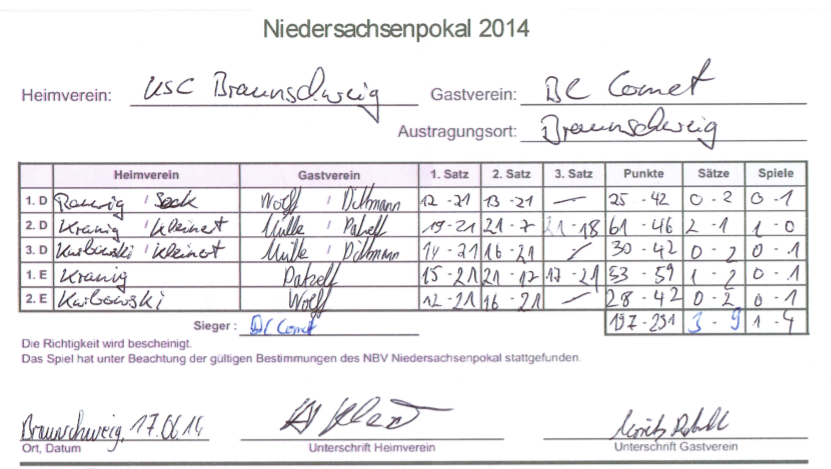 Niedersachsenpokal 2014
Heimverein: USC Braunschweig Gastverein: BC Comet
Austragungsort: Braunschweig
Heimverein Gastverein 1. Satz 2. Satz 3. Satz Punkte Sätze Spiele
1. D / Seck Wolff / Dittmann 12 - 21 13 - 21 — 25 - 42 0 - 2 0 - 1
2. D Kranig / Kleinert Mülle / Patzelt 19 - 21 21 - 7 21 - 18 61 - 46 2 - 1 1 - 0
3. D Kurbowski / Kleinert Mülle / Dittmann 14 - 21 16 - 21 — 30 - 42 0 - 2 0 - 1
1. E Kranig Patzelt 15 - 21 21 - 17 17 - 21 53 - 59 1 - 2 0 - 1
2. E Kurbowski Wolff 12 - 21 16 - 21 — 28 - 42 0 - 2 0 - 1
Sieger: BC Comet 197 - 231 3 - 9 1 - 4
Die Richtigkeit wird bescheinigt.
Das Spiel hat unter Beachtung der gültigen Bestimmungen des NBV Niedersachsenpokal stattgefunden.
Braunschweig, 17.06.14
Ort, Datum Unterschrift Heimverein Unterschrift Gastverein